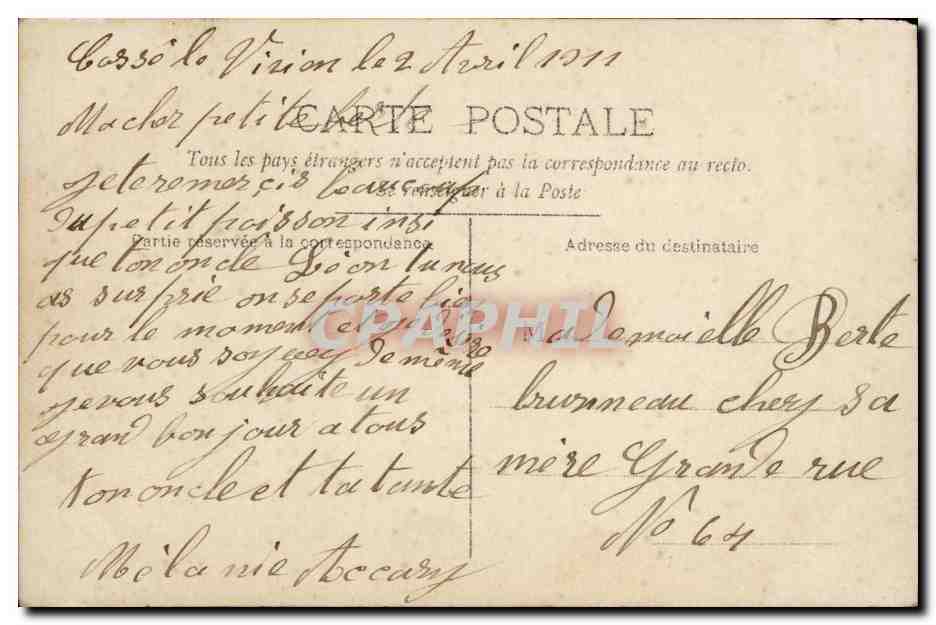 Cossé le Vivion le 2 Avril 1911
Ma cher petite berte
CARTE POSTALE
Tous les pays étrangers n'acceptent pas la correspondance au recto.
Se renseigner à la Poste
je te remercis beaucoup
du petit poisson insi
Partie réservée à la correspondance
Adresse du destinataire
que ton oncle Léon tu nous
as surprie on se porte bien
pour le moment et
que vous soyez de même
je vous souhaite un
grand bonjour a tous
ton oncle et ta tante
Mélanie Accary
Mademoielle Berte
brunneau chez sa
mère Grande rue
No 64
CPAPHIL